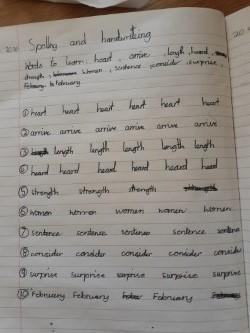 2020
Spelling and handwriting
Words to learn: heart, arrive, length, heard,
strength, women, sentence, consider, surprise,
February. to February.
① heart heart heart heart heart heart
② arrive arrive arrive arrive arrive
③ length length length length length
④ heard heard heard heard heard heard
⑤ strength strength strength
⑥ women women women women women
⑦ sentence sentence sentence sentence sentence
⑧ consider consider consider consider consider
⑨ surprise surprise surprise surprise surprise
⑩ February February February